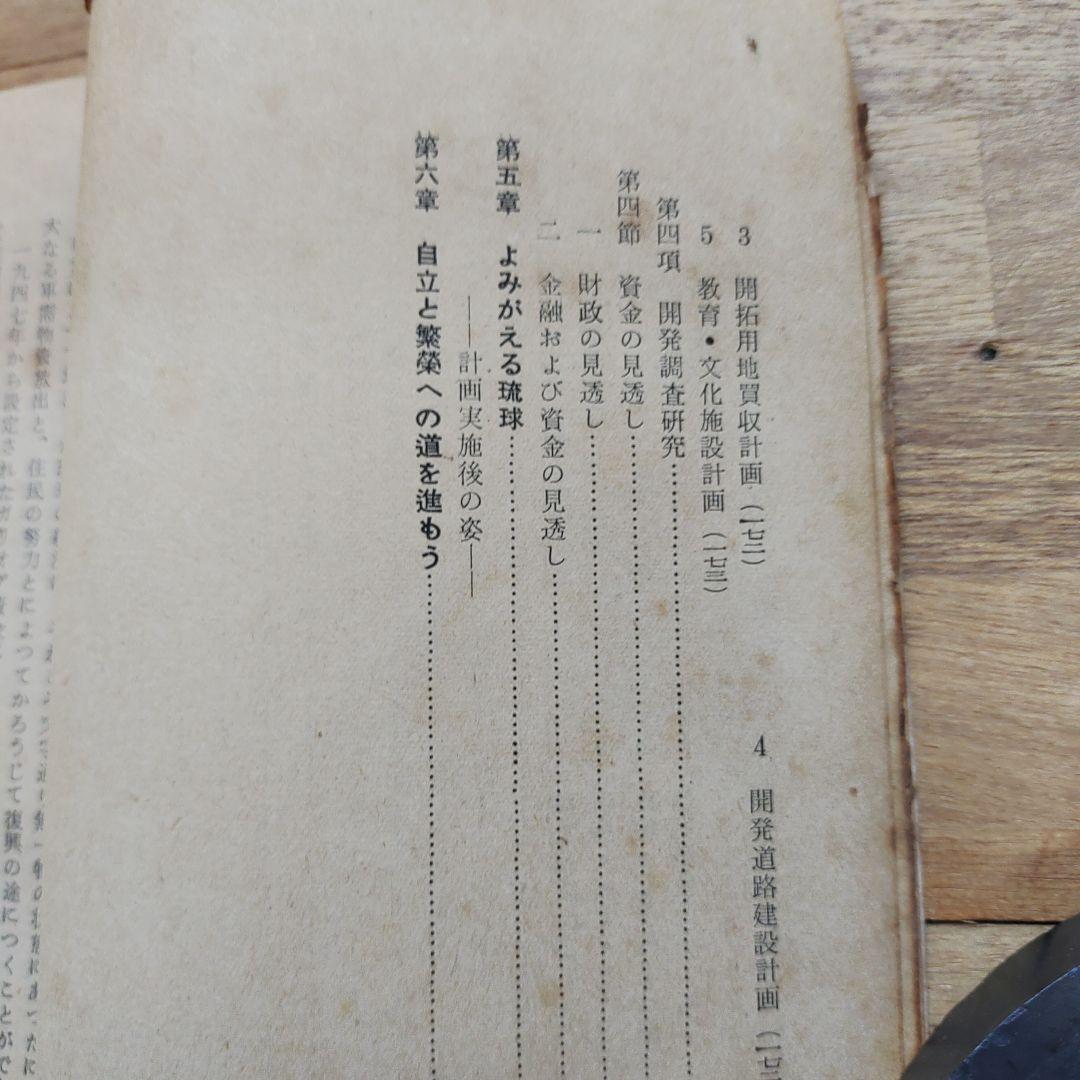 3 開拓用地買収計画(一七二)
4 開発道路建設計画(一七二
5 教育・文化施設計画(一七三)
第四項 開発調査研究
第四節 資金の見透し
一 財政の見透し
二 金融および資金の見透し
第五章 よみがえる琉球
――計画実施後の姿――
第六章 自立と繁榮への道を進もう
住民の努力とによつてかろうじて復興の途につくことがで
一九四七年から設定された